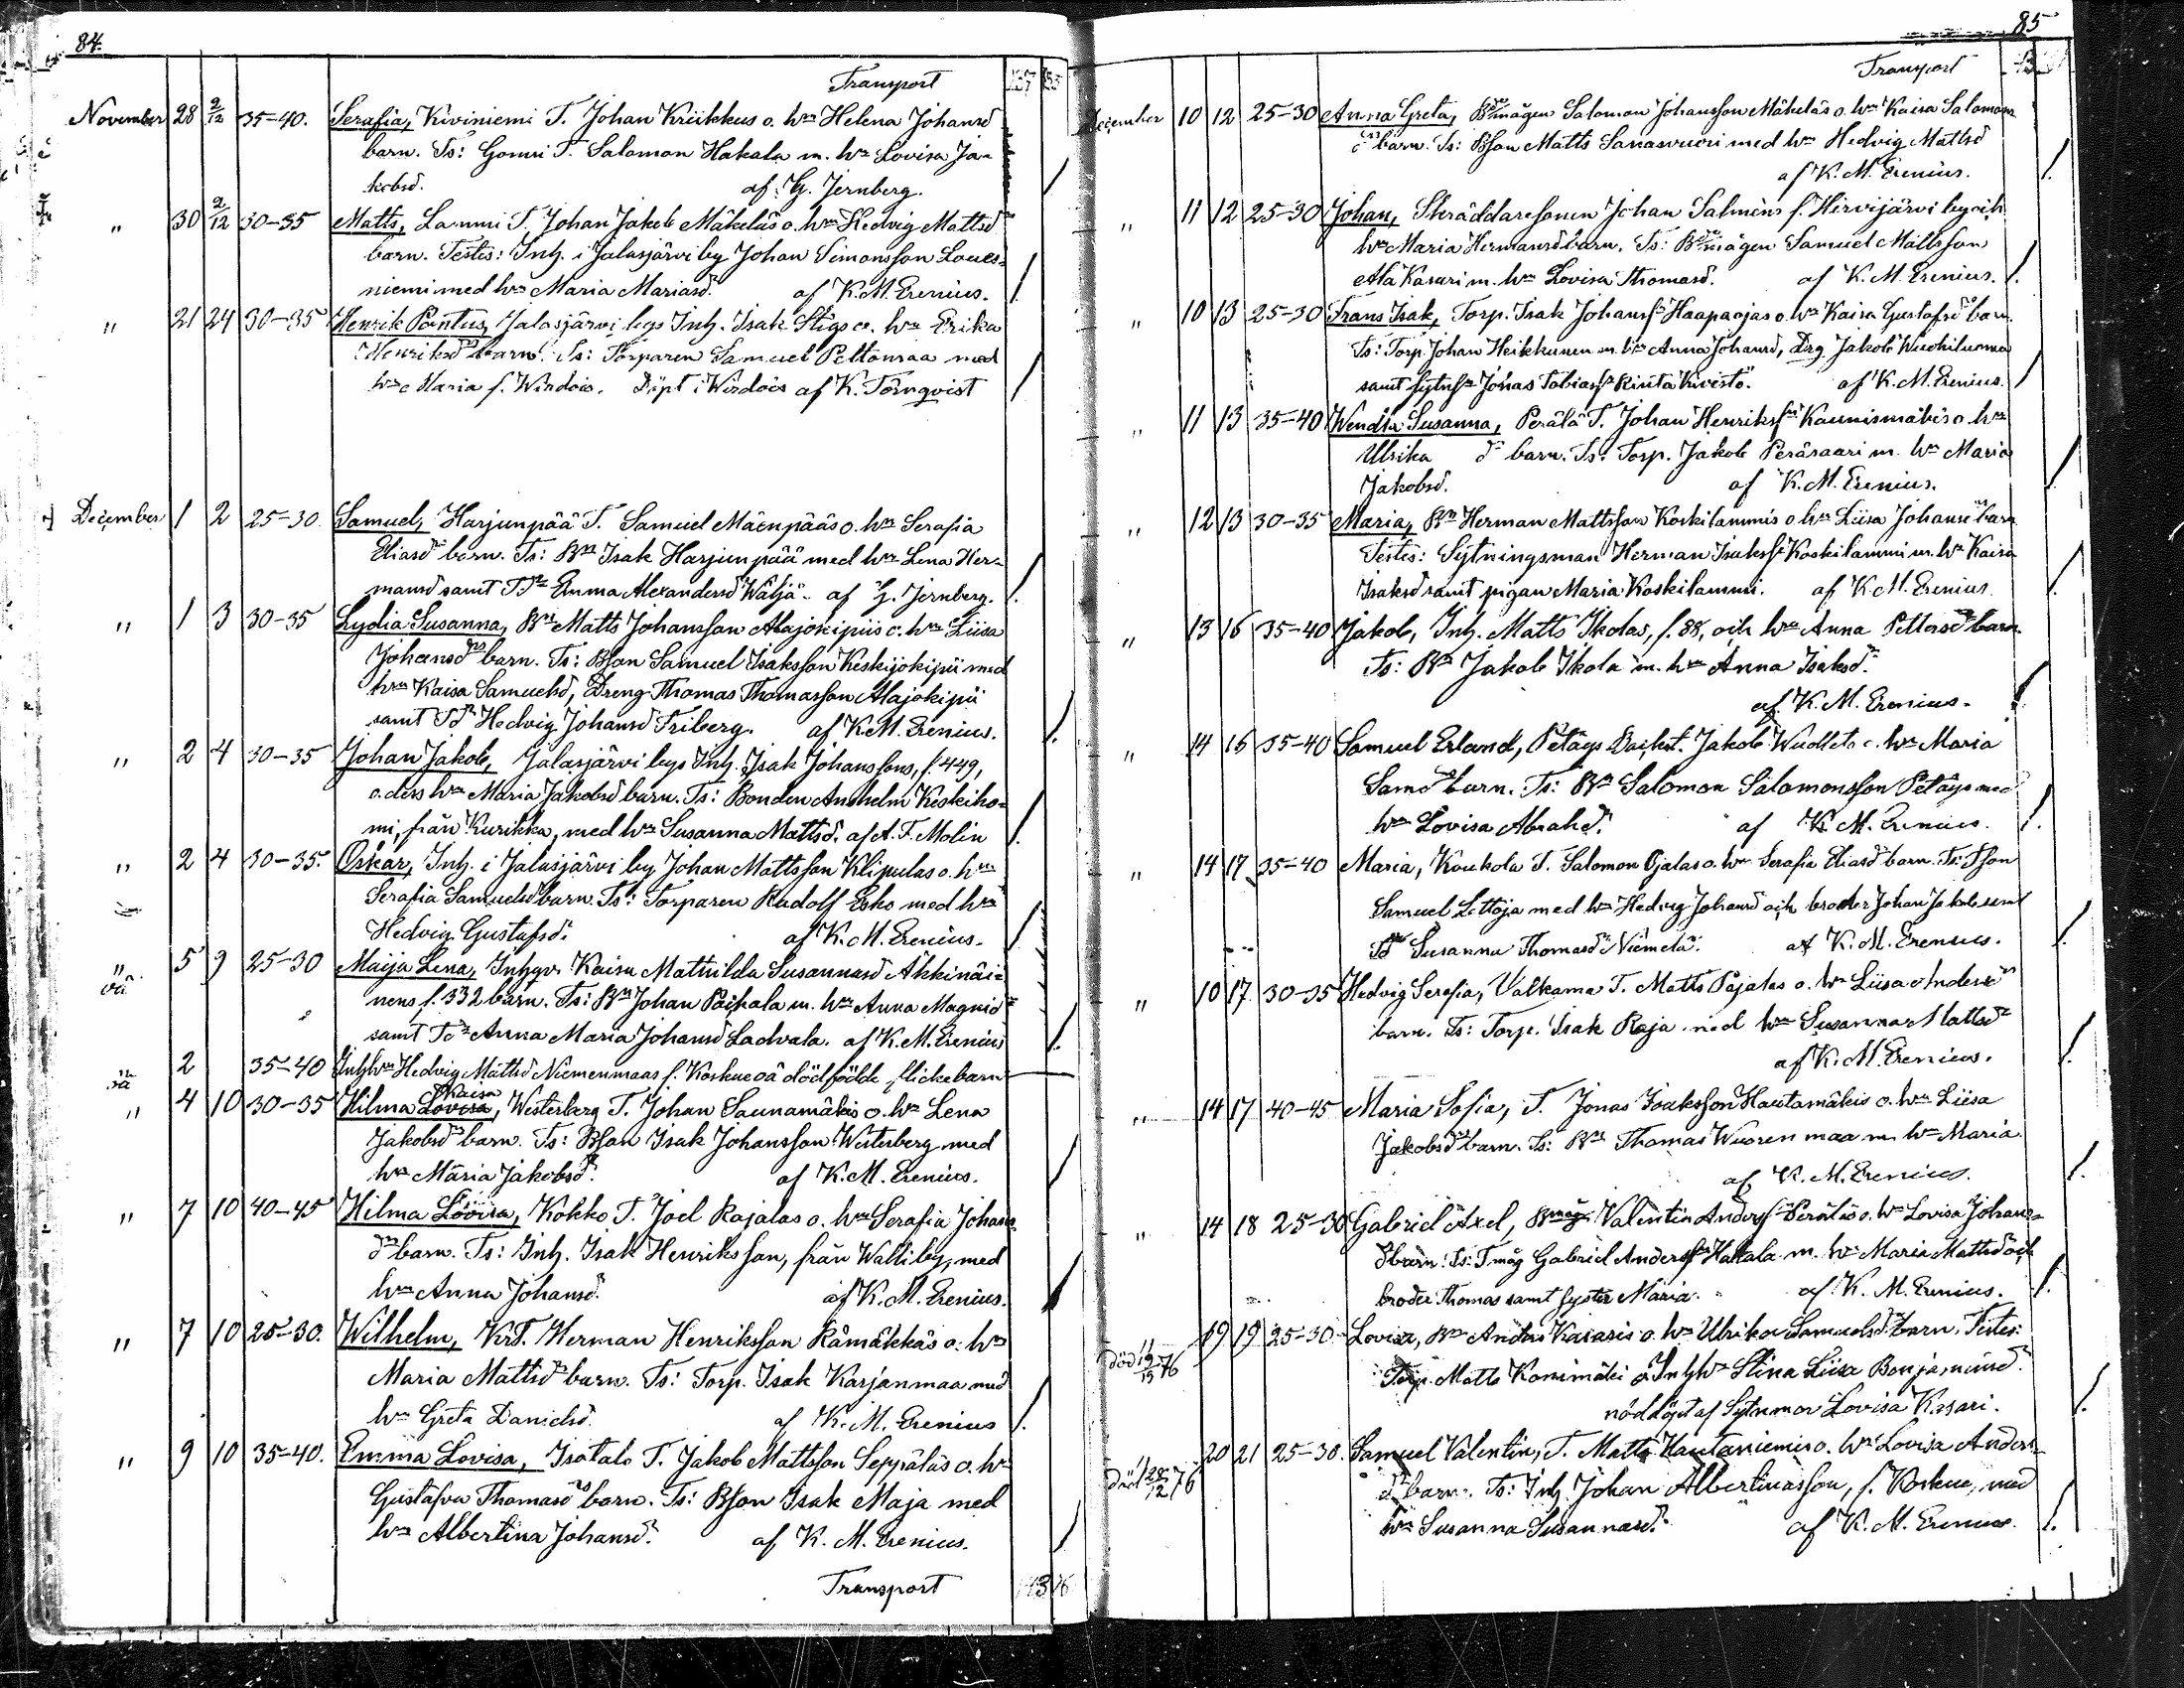 84.
Transport
November 28 2/12 35-40. Serafia, Kiviniemi T. Johan Kriikkus o. hn Helena Johansd
barn. Ts: Gomri T. Salomon Hakala m. hn Lovisa Ja-
kobsd. af G. Jernberg.
" 30 2/12 30-35 Matts, Lammi T. Johan Jakob Mäkeläs o. hn Hedvig Mattsd
barn. Testes: Inh. i Jalasjärvi by Johan Simonsson Loues-
niemi med hn Maria Mariasd. af K. M. Erenius.
" 21 24 30-35 Henrik Pontus, Jalasjärvi bys Inh. Isak Stigs o. hn Erika
Henriksd barn. Ts: Torparen Samuel Peltomaa med
hn Maria f. Wirdois. Döpt i Wirdois af K. Törnqvist
December 1 2 25-30. Samuel, Harjunpää T. Samuel Mäenpääs o. hn Serafia
Eliasd barn. Ts: Bn Isak Harjunpää med hn Lena Her-
mansd samt Td Emma Alexandersd Wälja. af G. Jernberg.
" 1 3 30-35 Lydia Susanna, Bn Matts Johansson Alajokipiis o. hn Liisa
Johansd barn. Ts: Bson Samuel Isaksson Keskijokipii med
hn Kaisa Samuelsd, Dreng Thomas Thomasson Alajokipii
samt Td Hedvig Johansd Friberg. af K. M. Erenius.
" 2 4 30-35 Johan Jakob, Jalasjärvi bys Inh. Isak Johanssons, f. 449,
o. dess hn Maria Jakobsd barn. Ts: Bonden Anshelm Keskiko-
mi, från Kurikka, med hn Susanna Mattsd. af A. F. Molin
" 2 4 30-35. Oskar, Inh. i Jalasjärvi by Johan Mattsson Klipulas o. hn
Serafia Samuelsd barn. Ts: Torparen Rudolf Esko med hn
Hedvig Gustafsd. af K. M. Erenius.
" 5 9 25-30 Maija Lena, Inhqv. Kaisa Mathilda Susannasd Äkkinäi-
nens, f. 332 barn. Ts: Bn Johan Paihala m. hn Anna Magnid
samt Td Anna Maria Johansd Ladvala. af K. M. Erenius
2 35-40 Inhhn Hedvig Mattsd Niemenmaas f. Koskue oä dödfödde flickebarn
" 4 10 30-35 Hilma Lovisa, Kaisa Westerberg T. Johan Saunamäkis o. hn Lena
Jakobsd barn. Ts: Bson Isak Johansson Westerberg med
hn Maria Jakobsd. af K. M. Erenius.
" 7 10 40-45 Hilma Lovisa, Kokko T. Joel Rajalas o. hn Serafia Johans-
d barn. Ts: Inh. Isak Henriksson, från Walliby, med
hn Anna Johansd. af K. M. Erenius.
" 7 10 25-30. Wilhelm, KrT. Herman Henriksson Rämäkkäs o. hn
Maria Mattsd barn. Ts: Torp. Isak Karjanmaa med
hn Greta Danielsd. af K. M. Erenius
" 9 10 35-40. Emma Lovisa, Isotalo T. Jakob Mattsson Seppäläs o. hn
Gustafva Thomasd barn. Ts: Bson Isak Maja med
hn Albertina Johansd. af K. M. Erenius.
Transport
85
Transport
December 10 12 25-30 Anna Greta, Bdmågen Salomon Johansson Mäkeläs o. hn Kaisa Salomons
d barn. Ts: Bson Matts Sanasvuori med hn Hedvig Mattsd
af K. M. Erenius.
" 11 12 25-30 Johan, Skräddaresonen Johan Salmens f. Hirvijärvi by och
hn Maria Hermansd barn. Ts: Bdmågen Samuel Mattsson
Ala Kasari m. hn Lovisa Thomasd. af K. M. Erenius.
" 10 13 25-30 Frans Isak, Torp. Isak Johanss Haapaojas o. hn Kaisa Gustafsd barn.
Ts: Torp. Johan Heikkunen m. hn Anna Johansd, Drg Jakob Wuohiluoma
samt sytns Jonas Tobiass Rinta Kivistö. af K. M. Erenius.
" 11 13 35-40 Wendla Susanna, Perälä T. Johan Henrikss Kaunismäkis o. hn
Ulrika d barn. Ts: Torp. Jakob Peräsaari m. hn Maria
Jakobsd. af K. M. Erenius.
" 12 13 30-35 Maria, Bn Herman Mattsson Koskilammis o hn Liisa Johansd barn
Testes: Sytningsman Herman Isakss Koskilammi m. hn Kaisa
Isaksd samt pigan Maria Koskilammi. af K. M. Erenius.
" 13 16 35-40 Jakob, Inh. Matts Ikolas, f. 88, och hn Anna Pettersd barn.
Ts: Bn Jakob Ikola m. hn Anna Isaksd.
af K. M. Erenius.
" 14 16 35-40 Samuel Erland, Petäys Backst. Jakob Wuolleto o. hn Maria
Samd barn. Ts: Bn Salomon Salomonsson Petäys med
hn Lovisa Abrahd. af K. M. Erenius.
" 14 17 35-40 Maria, Koukola T. Salomon Ojalas o. hn Serafia Eliasd barn. Ts: Tson
Samuel Lettoja med hn Hedvig Johansd och broder Johan Jakob samt
Td Susanna Thomasd Niemelä. af K. M. Erenius.
" 10 17 30-35 Hedvig Serafia, Valkama T. Matts Pajalas o. hn Liisa Andersd
barn. Ts: Torp. Isak Raja med hn Susanna Mattsd
af K. M. Erenius.
" 14 17 40-45 Maria Sofia, T. Jonas Isaksson Hautamäkis o. hn Liisa
Jakobsd barn. Ts: Bn Thomas Wuorenmaa m. hn Maria
af K. M. Erenius.
" 14 18 25-30 Gabriel Axel, Bmåg Valentin Anderss Peräläs o. hn Lovisa Johans-
d barn. Ts: Tmåg Gabriel Anderss Hakala m. hn Maria Mattsd och
broder Thomas samt syster Maria. af K. M. Erenius.
" 19 19 25-30. Lovisa, Bn Anders Kasaris o. hn Ulrika Samuelsd barn. Testes:
död 19/12 76 Torp. Matts Konimäki o Inhhn Stina Liisa Benjaminsd.
nöddöpt af Sytnmor Lovisa Kasari.
" 20 21 25-30. Samuel Valentin, T. Matts Hautaniemis o. hn Lovisa Anders-
död 28/12 76 d barn. Ts: Inh Johan Albertinasson, f. Koskue, med
hn Susanna Susannasd. af K. M. Erenius.